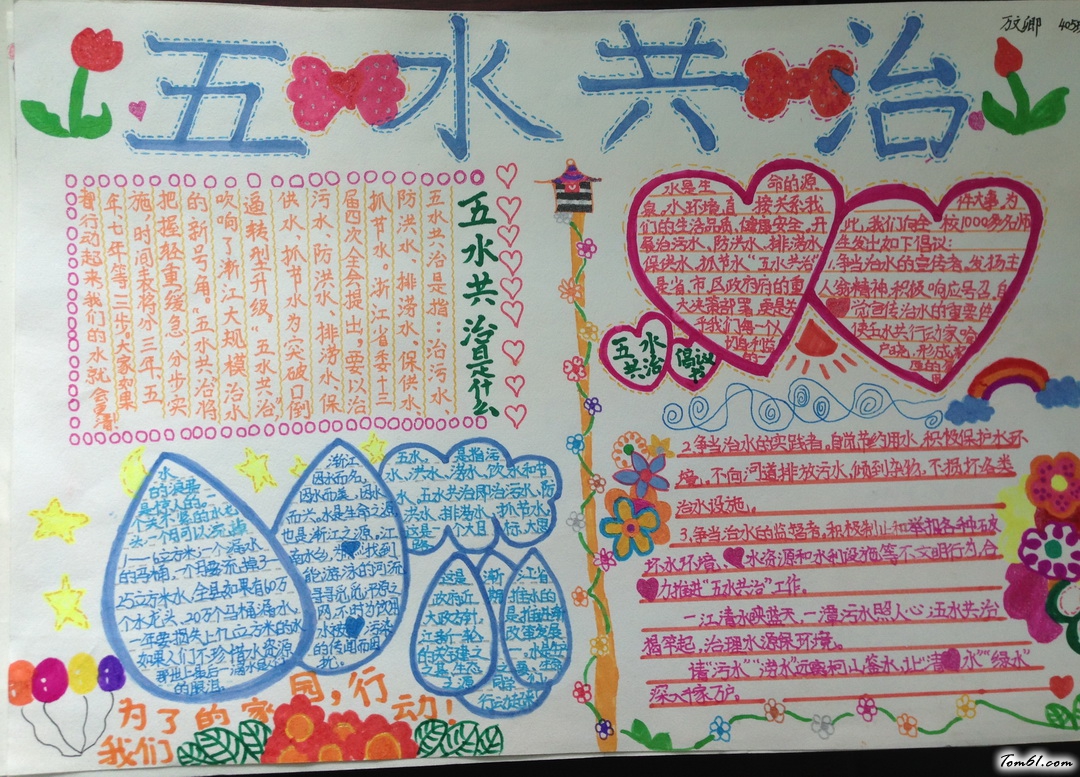 五水共治
万文卿 405班
五水共治是什么
五水共治是指：治污水、
防洪水、排涝水、保供水、
抓节水。浙江省委十三
届四次全会提出，要以治
污水、防洪水、排涝水、保
供水、抓节水为突破口倒
逼转型升级。“五水共治”
吹响了浙江大规模治水
的新号角。“五水共治”将
把握轻重缓急，分步实
施，时间表将分三年、五
年、七年等三步。大家如果
都行动起来我们的水就会更清！
水是生 命的源
泉，水环境直接关系我
们的生活品质、健康安全。开
展治污水、防洪水、排涝水
保供水、抓节水“五水共治
是省、市、区政府的重
大决策部署，更是关
乎我们每一个人
切身利益的
件大事，为
此，我们向全校1000多名师
生发出如下倡议：
1.争当治水的宣传者，发扬主
人翁精神，积极响应号召，自
觉宣传治水的重要性
使五水共行动家喻
户晓，形成
五水共治
倡议书
2.争当治水的实践者，自觉节约用水，积极保护水环
境，不向河道排放污水，倾到杂物，不损坏各类
治水设施。
3.争当治水的监督者，积极制止和举报各种破
坏水环境、水资源和水利设施等不文明行为，合
力推进“五水共治”工作。
一江清水映蓝天，一潭污水照人心，五水共治
揭竿起，治理水源保环境。
请“污水”“涝水”远离柯山鉴水，让“清水”“绿水”
深入千家万户。
水
的浪费
是惊人的。一
个关不紧的水龙
头，一个月可以流掉
1—6立方米；一个漏水
的马桶，一个月要流掉3—
25立方米水，全县如果有60万
个水龙头、20万个马桶漏水，
一年要损失上亿立方米的水
如果人们不珍惜水资源
那地上最后一滴水是人们
的眼泪。
浙江，
因水而名，
因水而美，因水
而兴。水是生命之源
也是浙江之源。江
能游泳的河流
五水，是指污
水、洪水、涝水、饮水和节
水、五水共治即治污水、防
洪水、排涝水、抓节水，
这是 个大目标，大思
这是浙 江省
政府近期推出的
大政方针，是推进浙
江新一轮改革发展
的关键之 水是生
为了我们的家园，行动！
Tom61.com